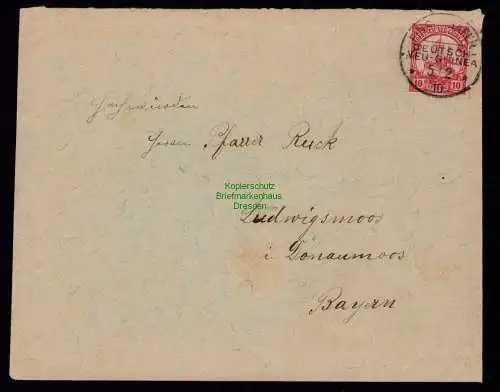 DEUTSCH
NEU-GUINEA
5.12
10 10
Hochwürden
Herrn Pfarrer Ruck
Kopierschutz
Briefmarkenhaus
Dresden
Ludwigsmoos
i Donaumoos
Bayern